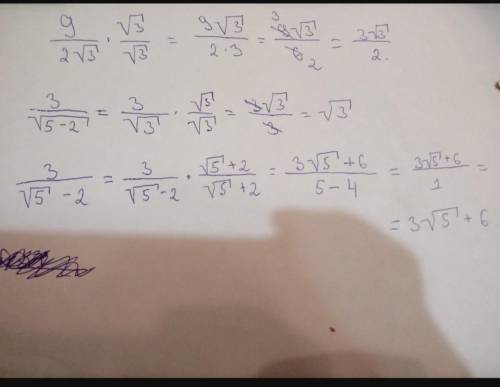 9/(2√3) · √3/√3 = 9√3/(2·3) = 9√3/6 3 2 = 3√3/2.
3/√(5-2) = 3/√3 · √5/√3 = 3√3/3 = √3
3/(√5 - 2) = 3/(√5 - 2) · (√5 + 2)/(√5 + 2) = (3√5 + 6)/(5 - 4) = (3√5 + 6)/1 =
= 3√5 + 6